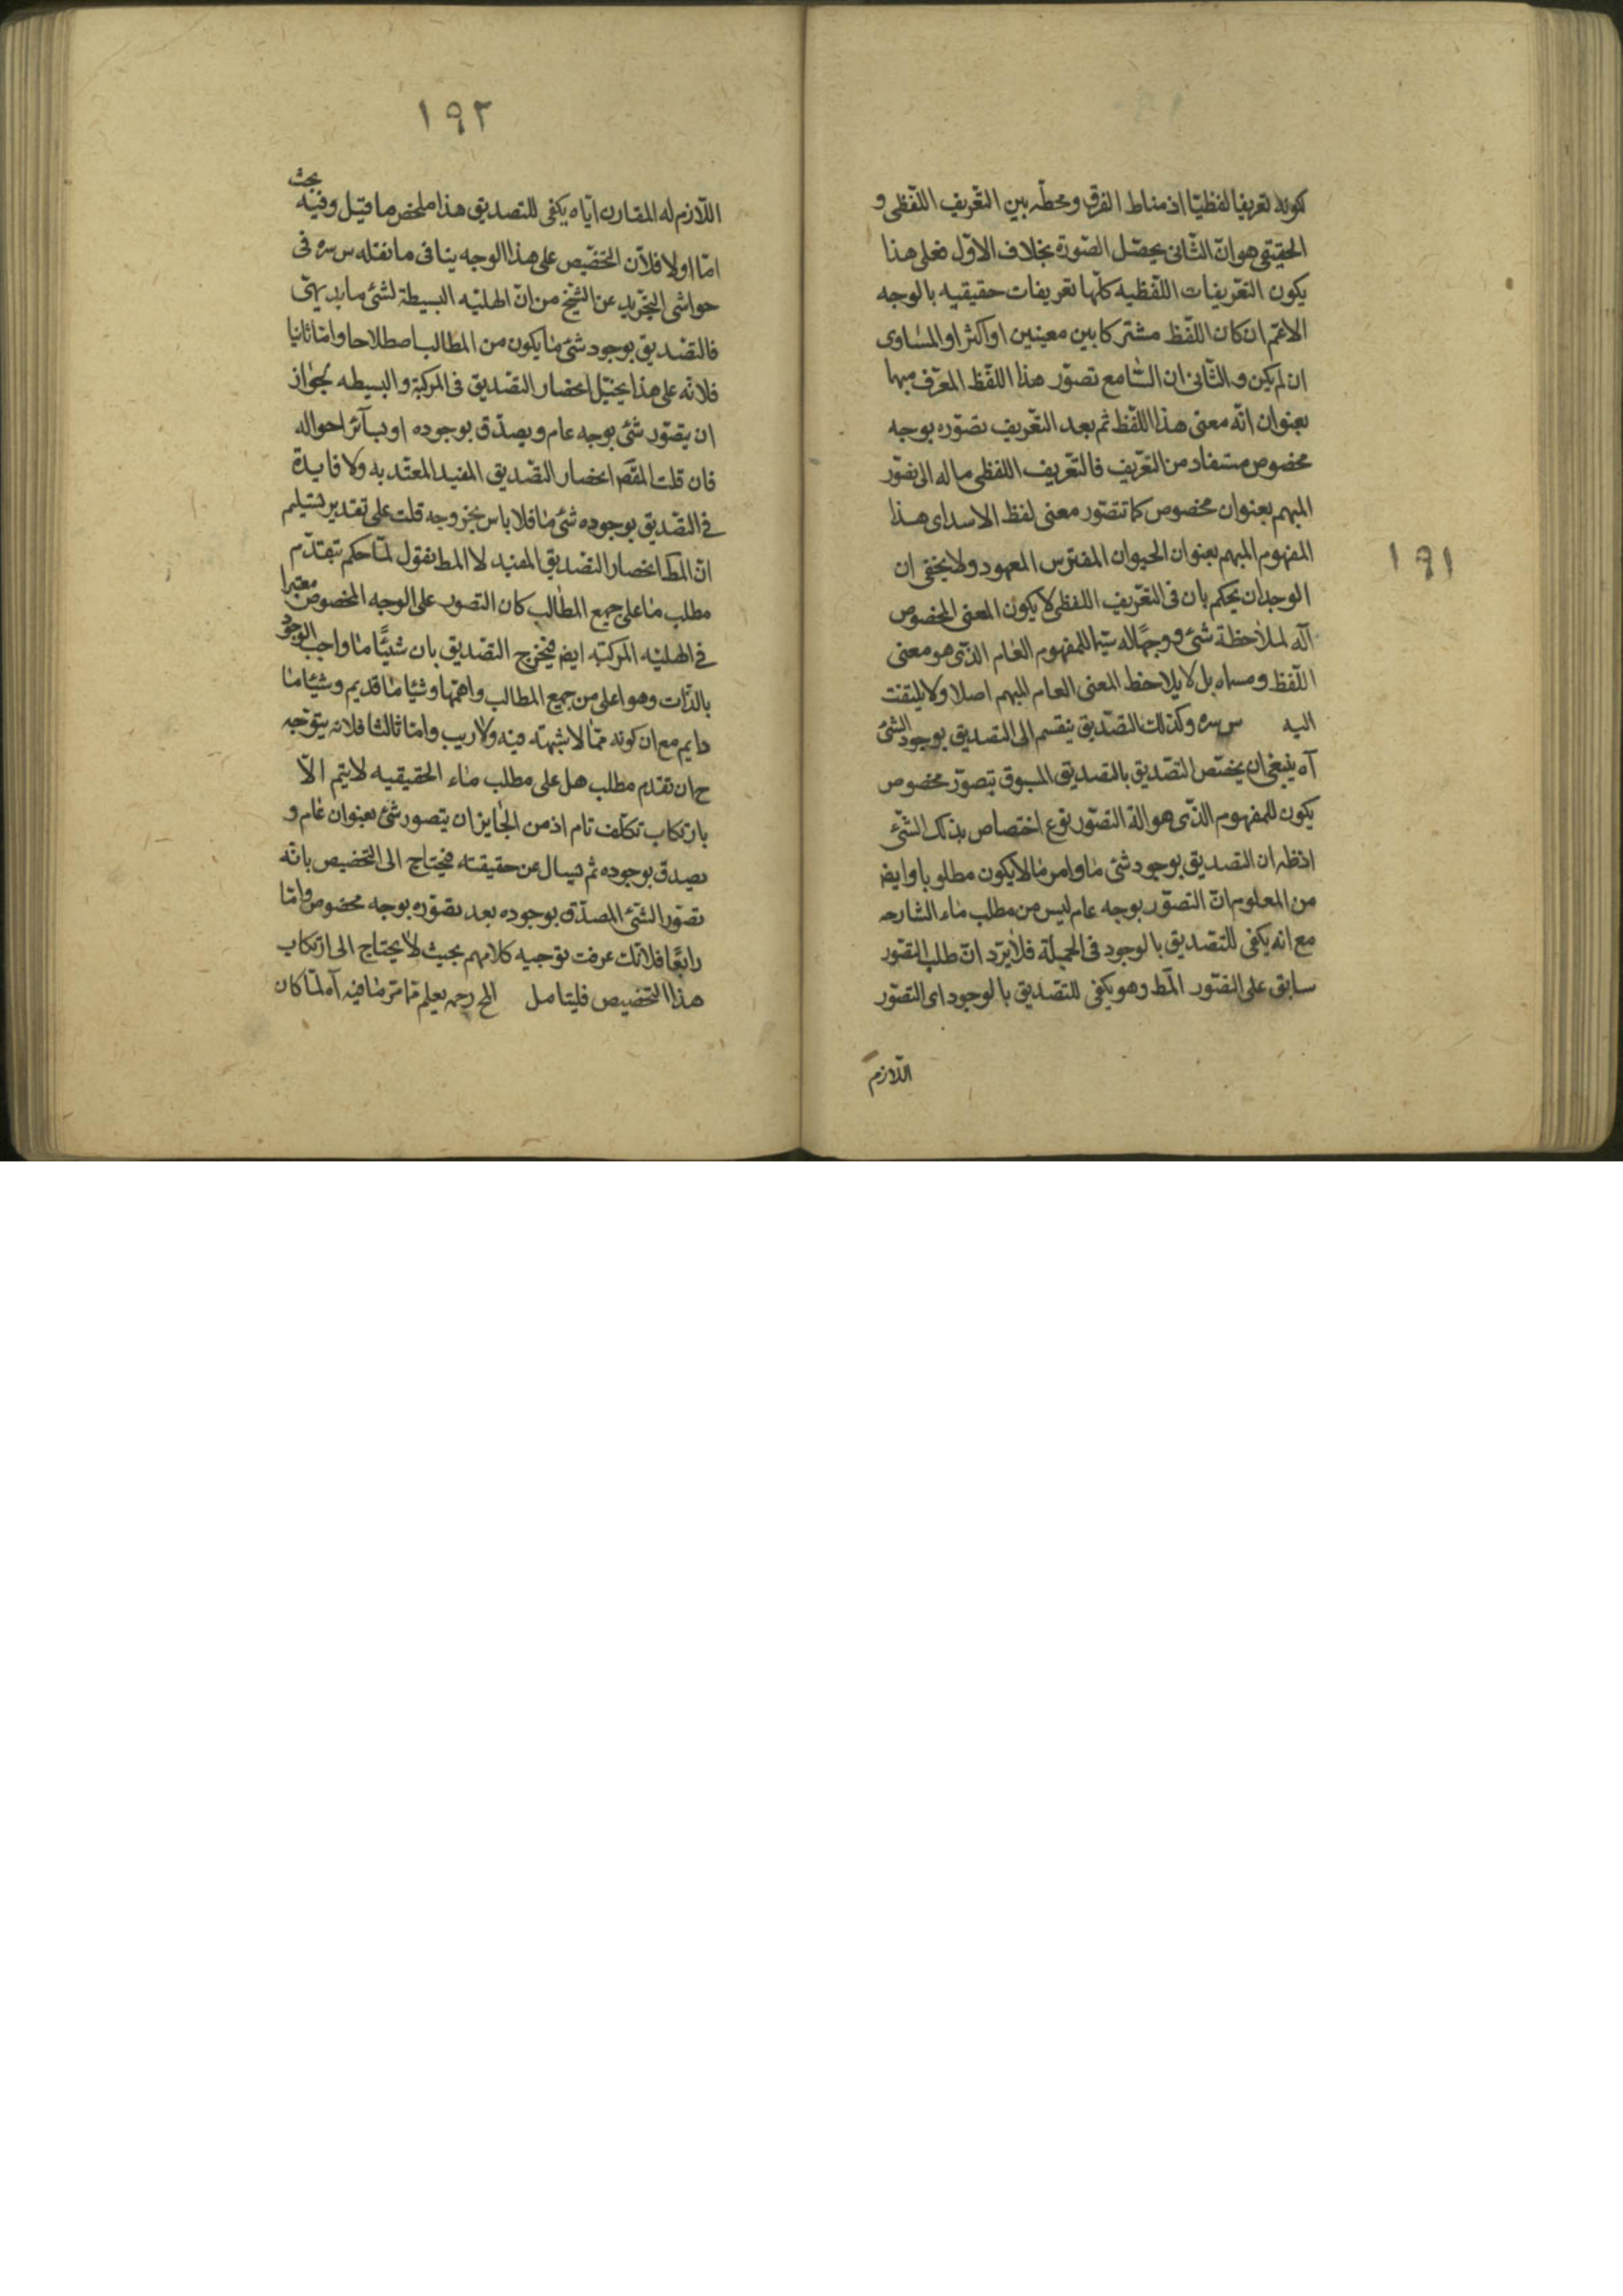 ١٩١
كونه تعريفا لفظيّا اذ مناط الفرق ومحطّه بين التّعريف اللّفظى و
الحقيقى هو انّ الثّانى يحصّل الصّورة بخلاف الاوّل فعلى هذا
يكون التعّريفات اللّفظيه كلّها تعريفات حقيقيه بالوجه
الاعمّ ان كان اللّفظ مشتركا بين معينين او اكثر او المساوى
ان لم يكن والثّانى ان السّامع تصوّر هذا اللّفظ المعرّف مبهما
بعنوان انّه معنى هذا اللّفظ ثم بعد التّعريف تصوّره بوجه
مخصوص مستفاد من التعّريف فالتعّريف اللفظى ماله الى تصوّر
المبهم بعنوان مخصوص كما تتصّور معنى لفظ الاسد اى هذا
المفهوم المبهم بعنوان الحيوان المفترس المعهود ولا يخفى ان
الوجدان يحكم بان فى التعّريف اللفظى لا يكون المعنى المخصوص
آله لملاحظة شئ ووجها له سيّما للمفهوم العام الذّى هو معنى
اللّفظ ومسماه بل لا يلاحظ المعنى العام المبهم اصلا ولا يلتفت
اليه س سره وكذلك التصّديق ينقسم الى التصديق بوجود الشئ
آه ينبغى ان يختص التصّديق بالتصديق المسبوق بتصوّر مخصوص
يكون للمفهوم الذّى هو الة التصّور نوع اختصاص بذلك الشّئ
اذ ظهر ان التصديق بوجود شئ ما وامر ما لا يكون مطلوبا وايض
من المعلوم انّ التصّور بوجه عام ليس من مطلب ماء الشارحه
مع انه يكفى للتصديق بالوجود فى الجملة فلا يرد انّ طلب التصّور
سابق على التصّور المط وهو يكفى للتصديق بالوجود اى التصّور
اللّازم
١٩٢
اللّازم له المقارن ايّاه يكفى للتصديق هذا ملخص ما قيل وفيه بحث
امّا اولا فلانّ التخصّيص على هذا الوجه ينافى ما نقله س سره فى
حواشى التجّريد عن الشيخ من انّ الهليّه البسيطة لشئ ما بديهىّ
فالتصّديق بوجود شئ ما يكون من المطالب اصطلاحا وامّا ثانيا
فلانه على هذا يختل انحصار التصّديق فى المركبة والبسيطه لجواز
ان يتصّور شئ بوجه عام ويصدّق بوجوده او بسآئر احواله
فان قلت المقص انحصار التصّديق المفيد المعتّد به ولا فايدة
فى التصّديق بوجوده شئ ما فلا باس بخروجه قلت على تقدير تسليم
انّ المط انحصار التصديق المفيد لا المط نقول لمّا حكم بتقدّم
مطلب ما على جميع المطالب كان التصور على الوجه المخصوص معتبرا
فى الهليّه المركبّه ايض فيخرج التصديق بان شيئًا ما واجب الوجود
بالذّات وهو اعلى من جميع المطالب واهمّها وشيئا ما قديم وشيئا ما
دايم مع ان كونه ممّا لا شبهته فيه ولا ريب وامّا ثالثا فلانه يتوّجه
ح ان تقدم مطلب هل على مطلب ماء الحقيقيه لا يتم الّا
بارتكاب تكلّف تام اذ من الجايز ان يتصور شئ بعنوان عام و
يصدق بوجوده ثم يسال عن حقيقته فيحتاج الى التخصيص بانّه
تصّور الشئ المصدّق بوجوده بعد تصّوره بوجه مخصوص وامّا
رابعًا فلانك عرفت توجيه كلامهم بحيث لا يحتاج الى ارتكاب
هذا التخصّيص فليتامل المح رحمه يعلم ممّا مر ما فيه آه لمّا كان